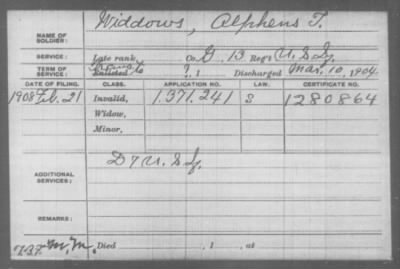 NAME OF SOLDIER: Widdows, Alphens T.
SERVICE: Late rank, Co. G, 13 Reg't U.S. Inf.
TERM OF SERVICE: Enlisted ?, 1 Discharged Mar. 10, 1904.
DATE OF FILING. CLASS. APPLICATION NO. LAW. CERTIFICATE NO.
1908 Feb. 21 Invalid, 1.371.241 S 1280864
Widow,
Minor,
ADDITIONAL SERVICES: D 7 U.S. Inf.
REMARKS:
Died , 1 , at